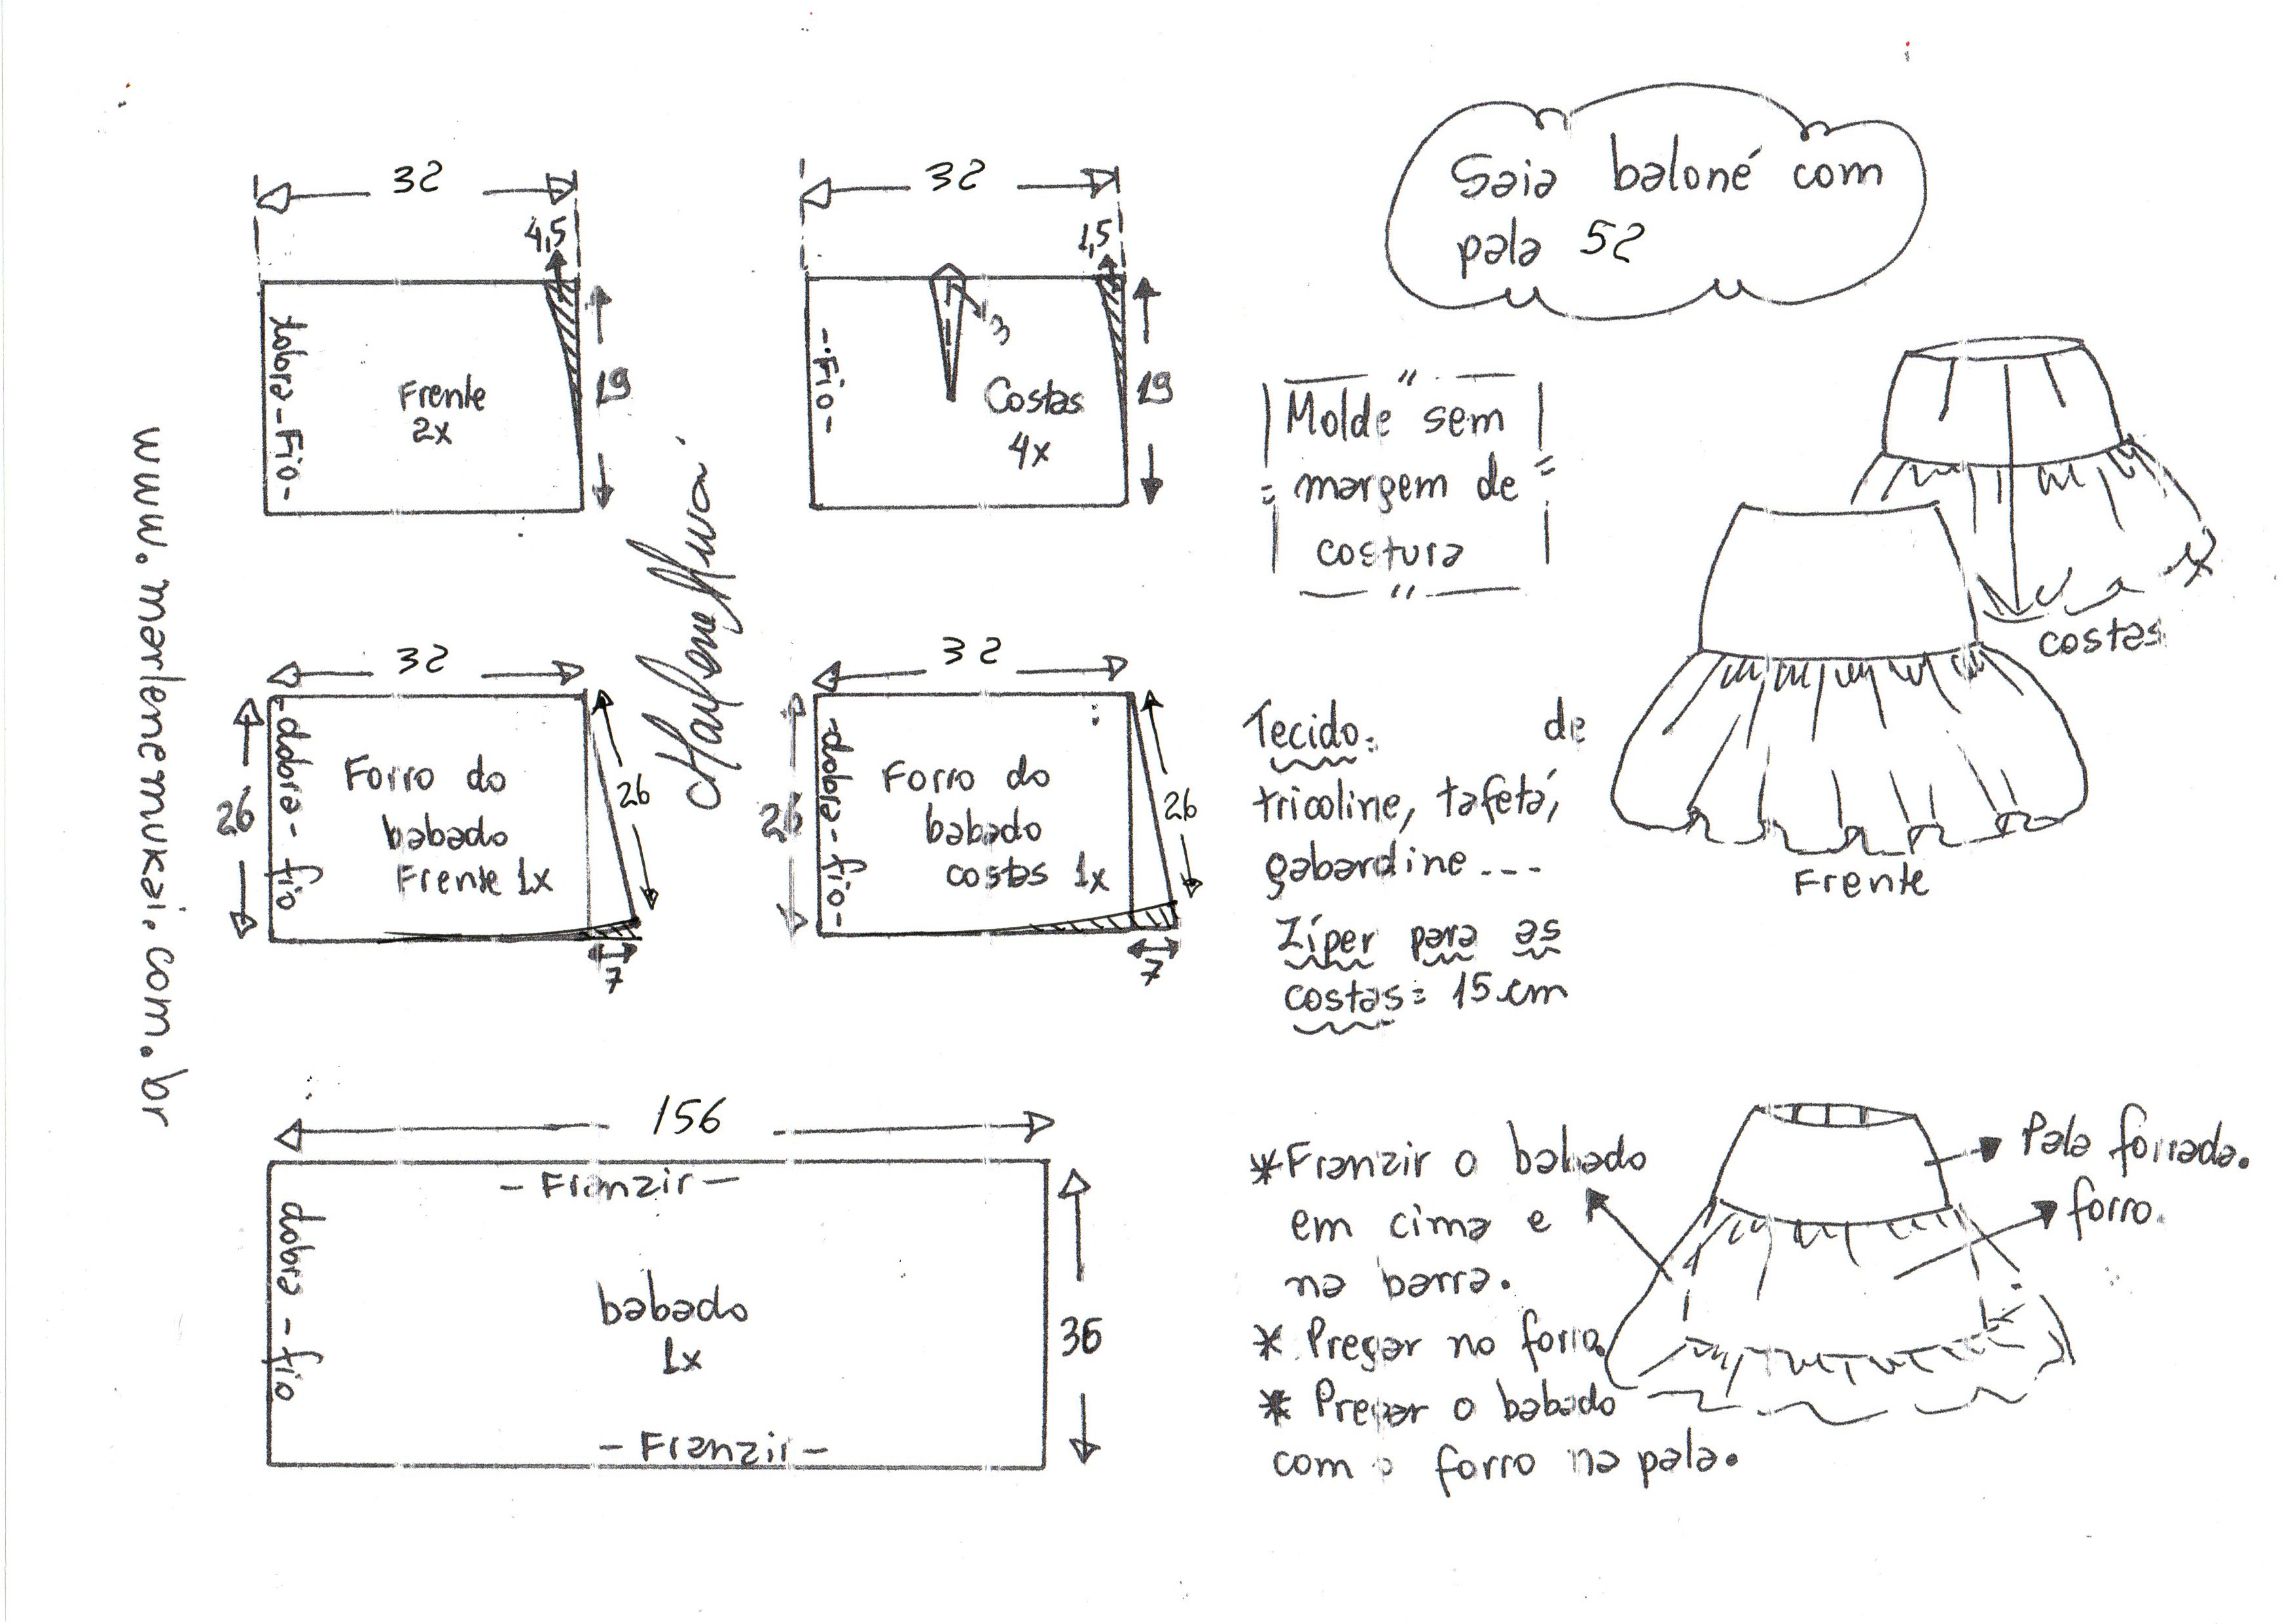 Saia baloné com
pala 52
32
4,5
19
dobra - Fio -
Frente
2x
32
1,5
3
19
- Fio -
Costas
4x
Molde sem
margem de
costura
costas
Frente
32
26
- dobra - fio
Forro do
babado
Frente 1x
26
7
32
26
- dobra - fio -
Forro do
babado
costas 1x
26
7
Tecido: de
tricoline, tafetá,
gabardine ---
Zíper para as
costas: 15 cm
156
- Franzir -
dobra - fio
babado
1x
36
- Franzir -
* Franzir o babado
em cima e
na barra.
* Pregar no forro.
* Pregar o babado
com o forro na pala.
Pala forrada.
forro.
Marlene Mukai
www.marlenemukai.com.br